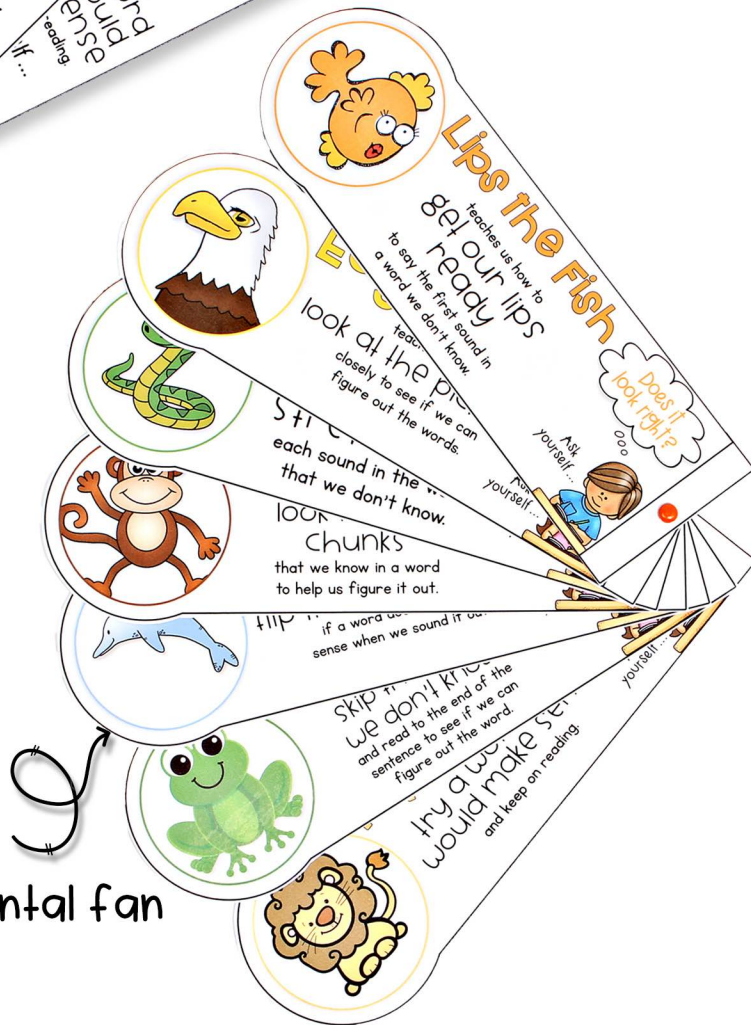 would
ense
eading.
lf ...
Lips the Fish
teaches us how to
get our lips
ready
to say the first sound in
a word we don't know.
Does it
look right?
Ask
yourself...
look at the
closely to see if we can
figure out the words.
yourself...
each sound in the
that we don't know.
chunks
that we know in a word
to help us figure it out.
if a word
sense when we sound it
skip
we don't
and read to the end of the
sentence to see if we can
figure out the word.
yourself...
try a
would make
and keep on reading.
ntal fan